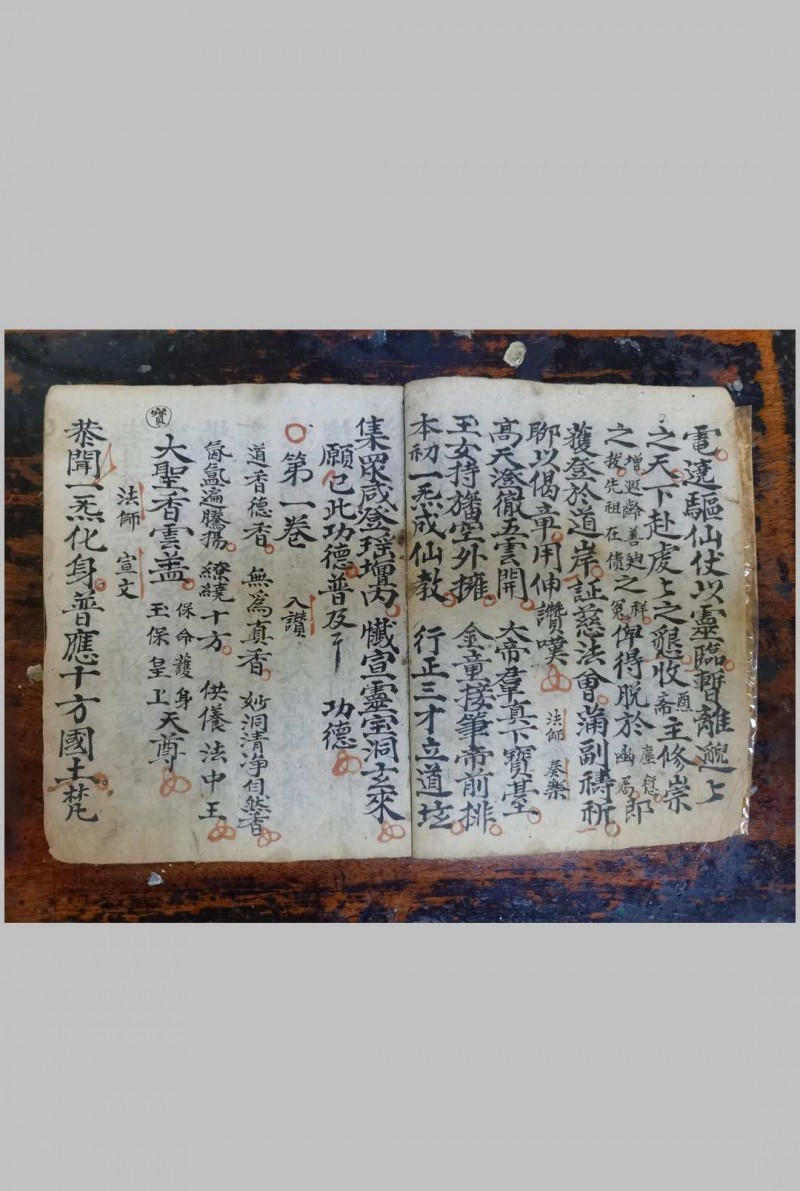 電遶驅仙仗以靈臨暫離邈上
之天下赴處上之懇收酉斋主修崇
之增遐齡善果之祥俾得脫於塵愆郎
拔先祖在債冤幽局
獲登於道岸証慈法會蒲副禱祈
聊以偈章用伸讚嘆 法師 奏樂
高天澄徹五雲開 大帝羣真下寶臺
玉女持旛空外擁 金童接筆帝前排
本初一炁成仙教 行正三才立道坛
集眾咸登瑶壇內 懺宣靈宝洞玄來
願已此功德普及 功德
第一卷 入讚
道香德香 無為真香 妙洞清净自然香
氤氲遍騰揚 繚繞十方 供養法中王
寳 大聖香雲盖 保命護身玉保皇上天尊
法師 宣文
恭聞一炁化身普應十方國土梵